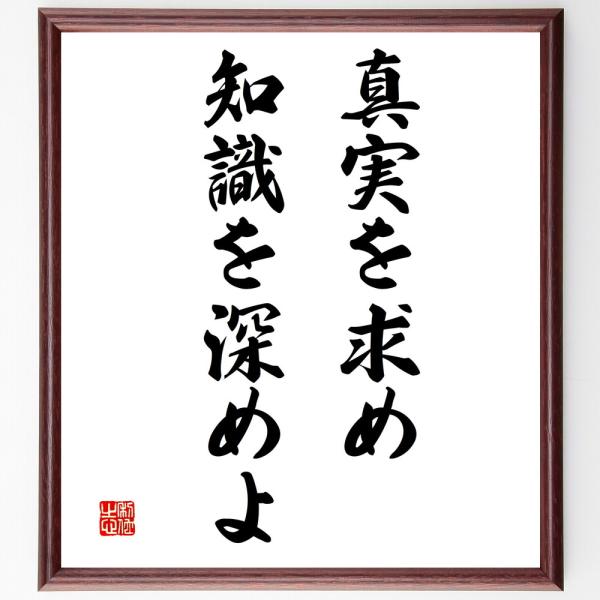 真実を求め
知識を深めよ